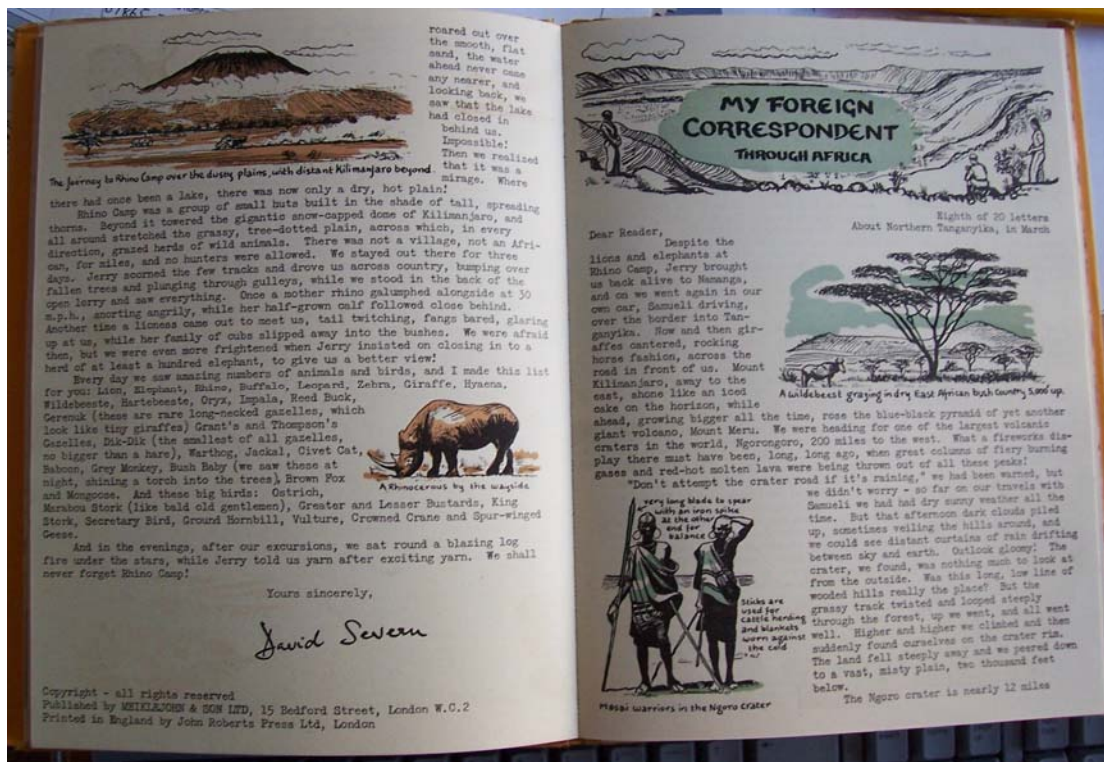 roared out over
the smooth, flat
sand, the water
ahead never came
any nearer, and
looking back, we
saw that the lake
had closed in
behind us.
Impossible!
Then we realized
that it was a
mirage. Where
The Journey to Rhino Camp over the dusty plains, with distant Kilimanjaro beyond.
there had once been a lake, there was now only a dry, hot plain!
Rhino Camp was a group of small huts built in the shade of tall, spreading
thorns. Beyond it towered the gigantic snow-capped dome of Kilimanjaro, and
all around stretched the grassy, tree-dotted plain, across which, in every
direction, grazed herds of wild animals. There was not a village, not an Afri-
can, for miles, and no hunters were allowed. We stayed out there for three
days. Jerry scorned the few tracks and drove us across country, bumping over
fallen trees and plunging through gulleys, while we stood in the back of the
open lorry and saw everything. Once a mother rhino galumphed alongside at 30
m.p.h., snorting angrily, while her half-grown calf followed close behind.
Another time a lioness came out to meet us, tail twitching, fangs bared, glaring
up at us, while her family of cubs slipped away into the bushes. We were afraid
then, but we were even more frightened when Jerry insisted on closing in to a
herd of at least a hundred elephant, to give us a better view!
Every day we saw amazing numbers of animals and birds, and I made this list
for you: Lion, Elephant, Rhino, Buffalo, Leopard, Zebra, Giraffe, Hyaena,
Wildebeeste, Hartebeeste, Oryx, Impala, Reed Buck,
Gerenuk (these are rare long-necked gazelles, which
look like tiny giraffes) Grant's and Thompson's
Gazelles, Dik-Dik (the smallest of all gazelles,
no bigger than a hare), Warthog, Jackal, Civet Cat,
Baboon, Grey Monkey, Bush Baby (we saw these at
night, shining a torch into the trees), Brown Fox
and Mongoose. And these big birds: Ostrich,
A Rhinocerous by the wayside
Marabou Stork (like bald old gentlemen), Greater and Lesser Bustards, King
Stork, Secretary Bird, Ground Hornbill, Vulture, Crowned Crane and Spur-winged
Geese.
And in the evenings, after our excursions, we sat round a blazing log
fire under the stars, while Jerry told us yarn after exciting yarn. We shall
never forget Rhino Camp!
Yours sincerely,
David Severn
Copyright - all rights reserved
Published by MEIKLEJOHN & SON LTD, 15 Bedford Street, London W.C.2
Printed in England by John Roberts Press Ltd, London
MY FOREIGN
CORRESPONDENT
THROUGH AFRICA
Eighth of 20 letters
About Northern Tanganyika, in March
Dear Reader,
Despite the
lions and elephants at
Rhino Camp, Jerry brought
us back alive to Namanga,
and on we went again in our
own car, Samueli driving,
over the border into Tan-
ganyika. Now and then gir-
affes cantered, rocking
horse fashion, across the
road in front of us. Mount
Kilimanjaro, away to the
east, shone like an iced
cake on the horizon, while
A wildebeest grazing in dry East African bush Country 5,000' up.
ahead, growing bigger all the time, rose the blue-black pyramid of yet another
giant volcano, Mount Meru. We were heading for one of the largest volcanic
craters in the world, Ngorongoro, 200 miles to the west. What a fireworks dis-
play there must have been, long, long ago, when great columns of fiery burning
gases and red-hot molten lava were being thrown out of all these peaks!
"Don't attempt the crater road if it's raining," we had been warned, but
we didn't worry - so far on our travels with
Samueli we had had dry sunny weather all the
time. But that afternoon dark clouds piled
up, sometimes veiling the hills around, and
we could see distant curtains of rain drifting
between sky and earth. Outlook gloomy! The
crater, we found, was nothing much to look at
from the outside. Was this long, low line of
wooded hills really the place? But the
grassy track twisted and looped steeply
through the forest, up we went, and all went
well. Higher and higher we climbed and then
suddenly found ourselves on the crater rim.
The land fell steeply away and we peered down
to a vast, misty plain, two thousand feet
below.
The Ngoro crater is nearly 12 miles
very long blade to spear
with an iron spike
at the other
end for
balance
Sticks are
used for
cattle herding
and blankets
worn against
the cold
Masai warriors in the Ngoro Crater